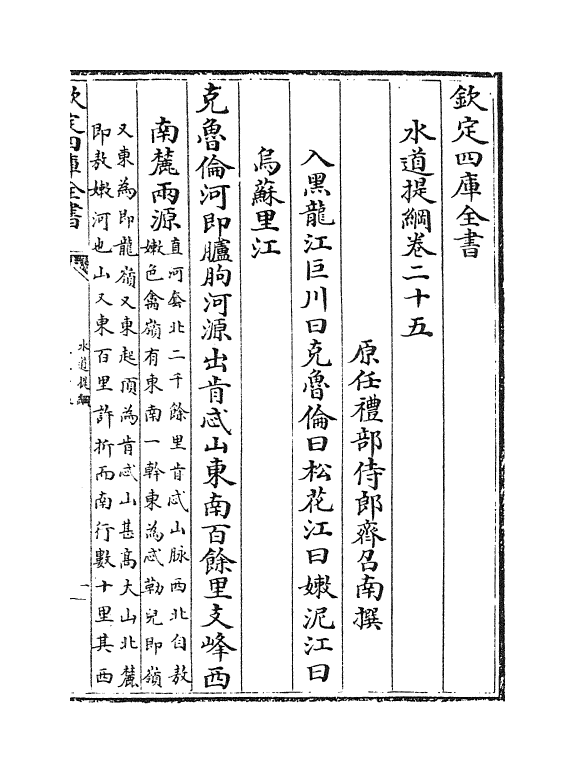 欽定四庫全書
水道提綱卷二十五
原任禮部侍郎齊召南撰
入黑龍江巨川曰克魯倫曰松花江曰嫩泥江曰
烏蘇里江
克魯倫河即臚朐河源出肯忒山東南百餘里支峰西
南麓兩源
直河套北二千餘里肯忒山脉西北自敖
嫩色禽嶺有東南一幹東為忒勒兒即嶺
又東為即龍嶺又東起頂為肯忒山甚高大山北麓
即敖嫩河也山又東百里許折而南行數十里其西
欽定四庫全書
水道提綱